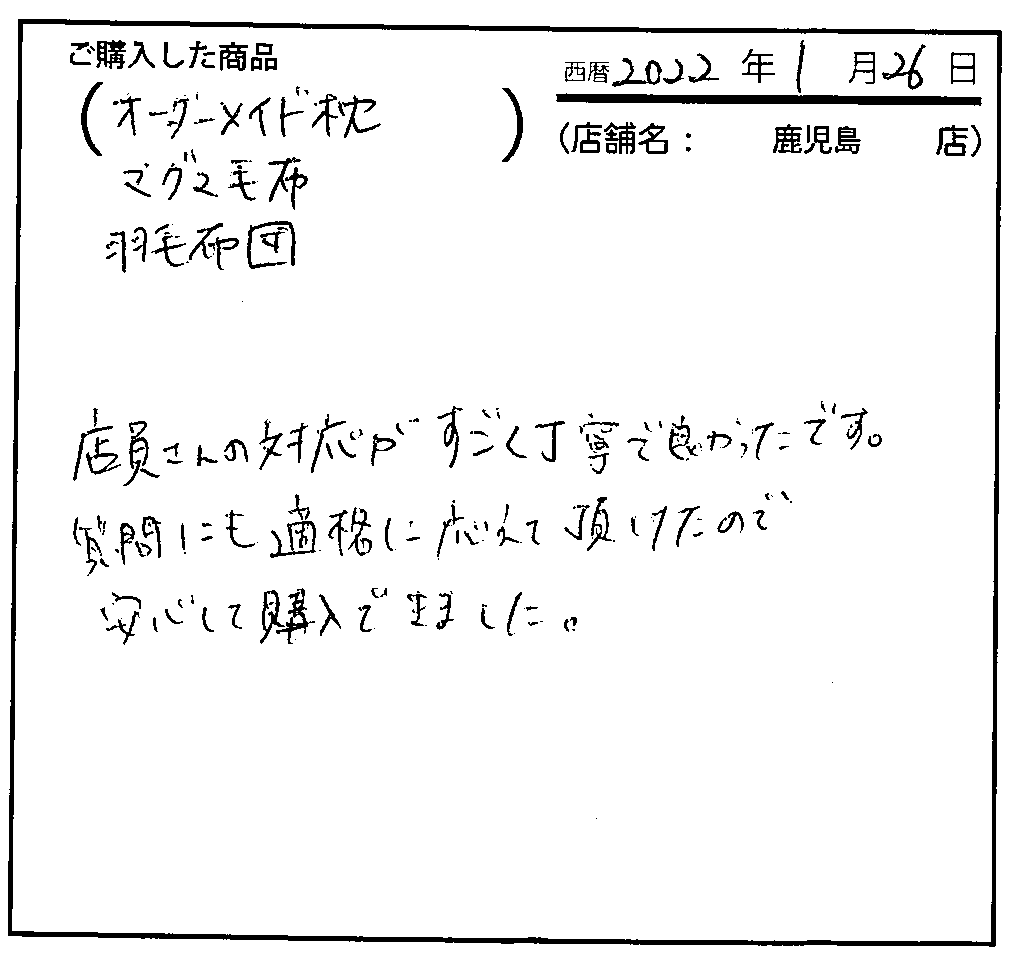 ご購入した商品
西暦2022年1月26日
(オーダーメイド枕)
(店舗名： 鹿児島 店)
マグマ毛布
羽毛布団
店員さんの対応がすごく丁寧で良かったです。
質問にも適格に応えて頂けたので
安心して購入できました。